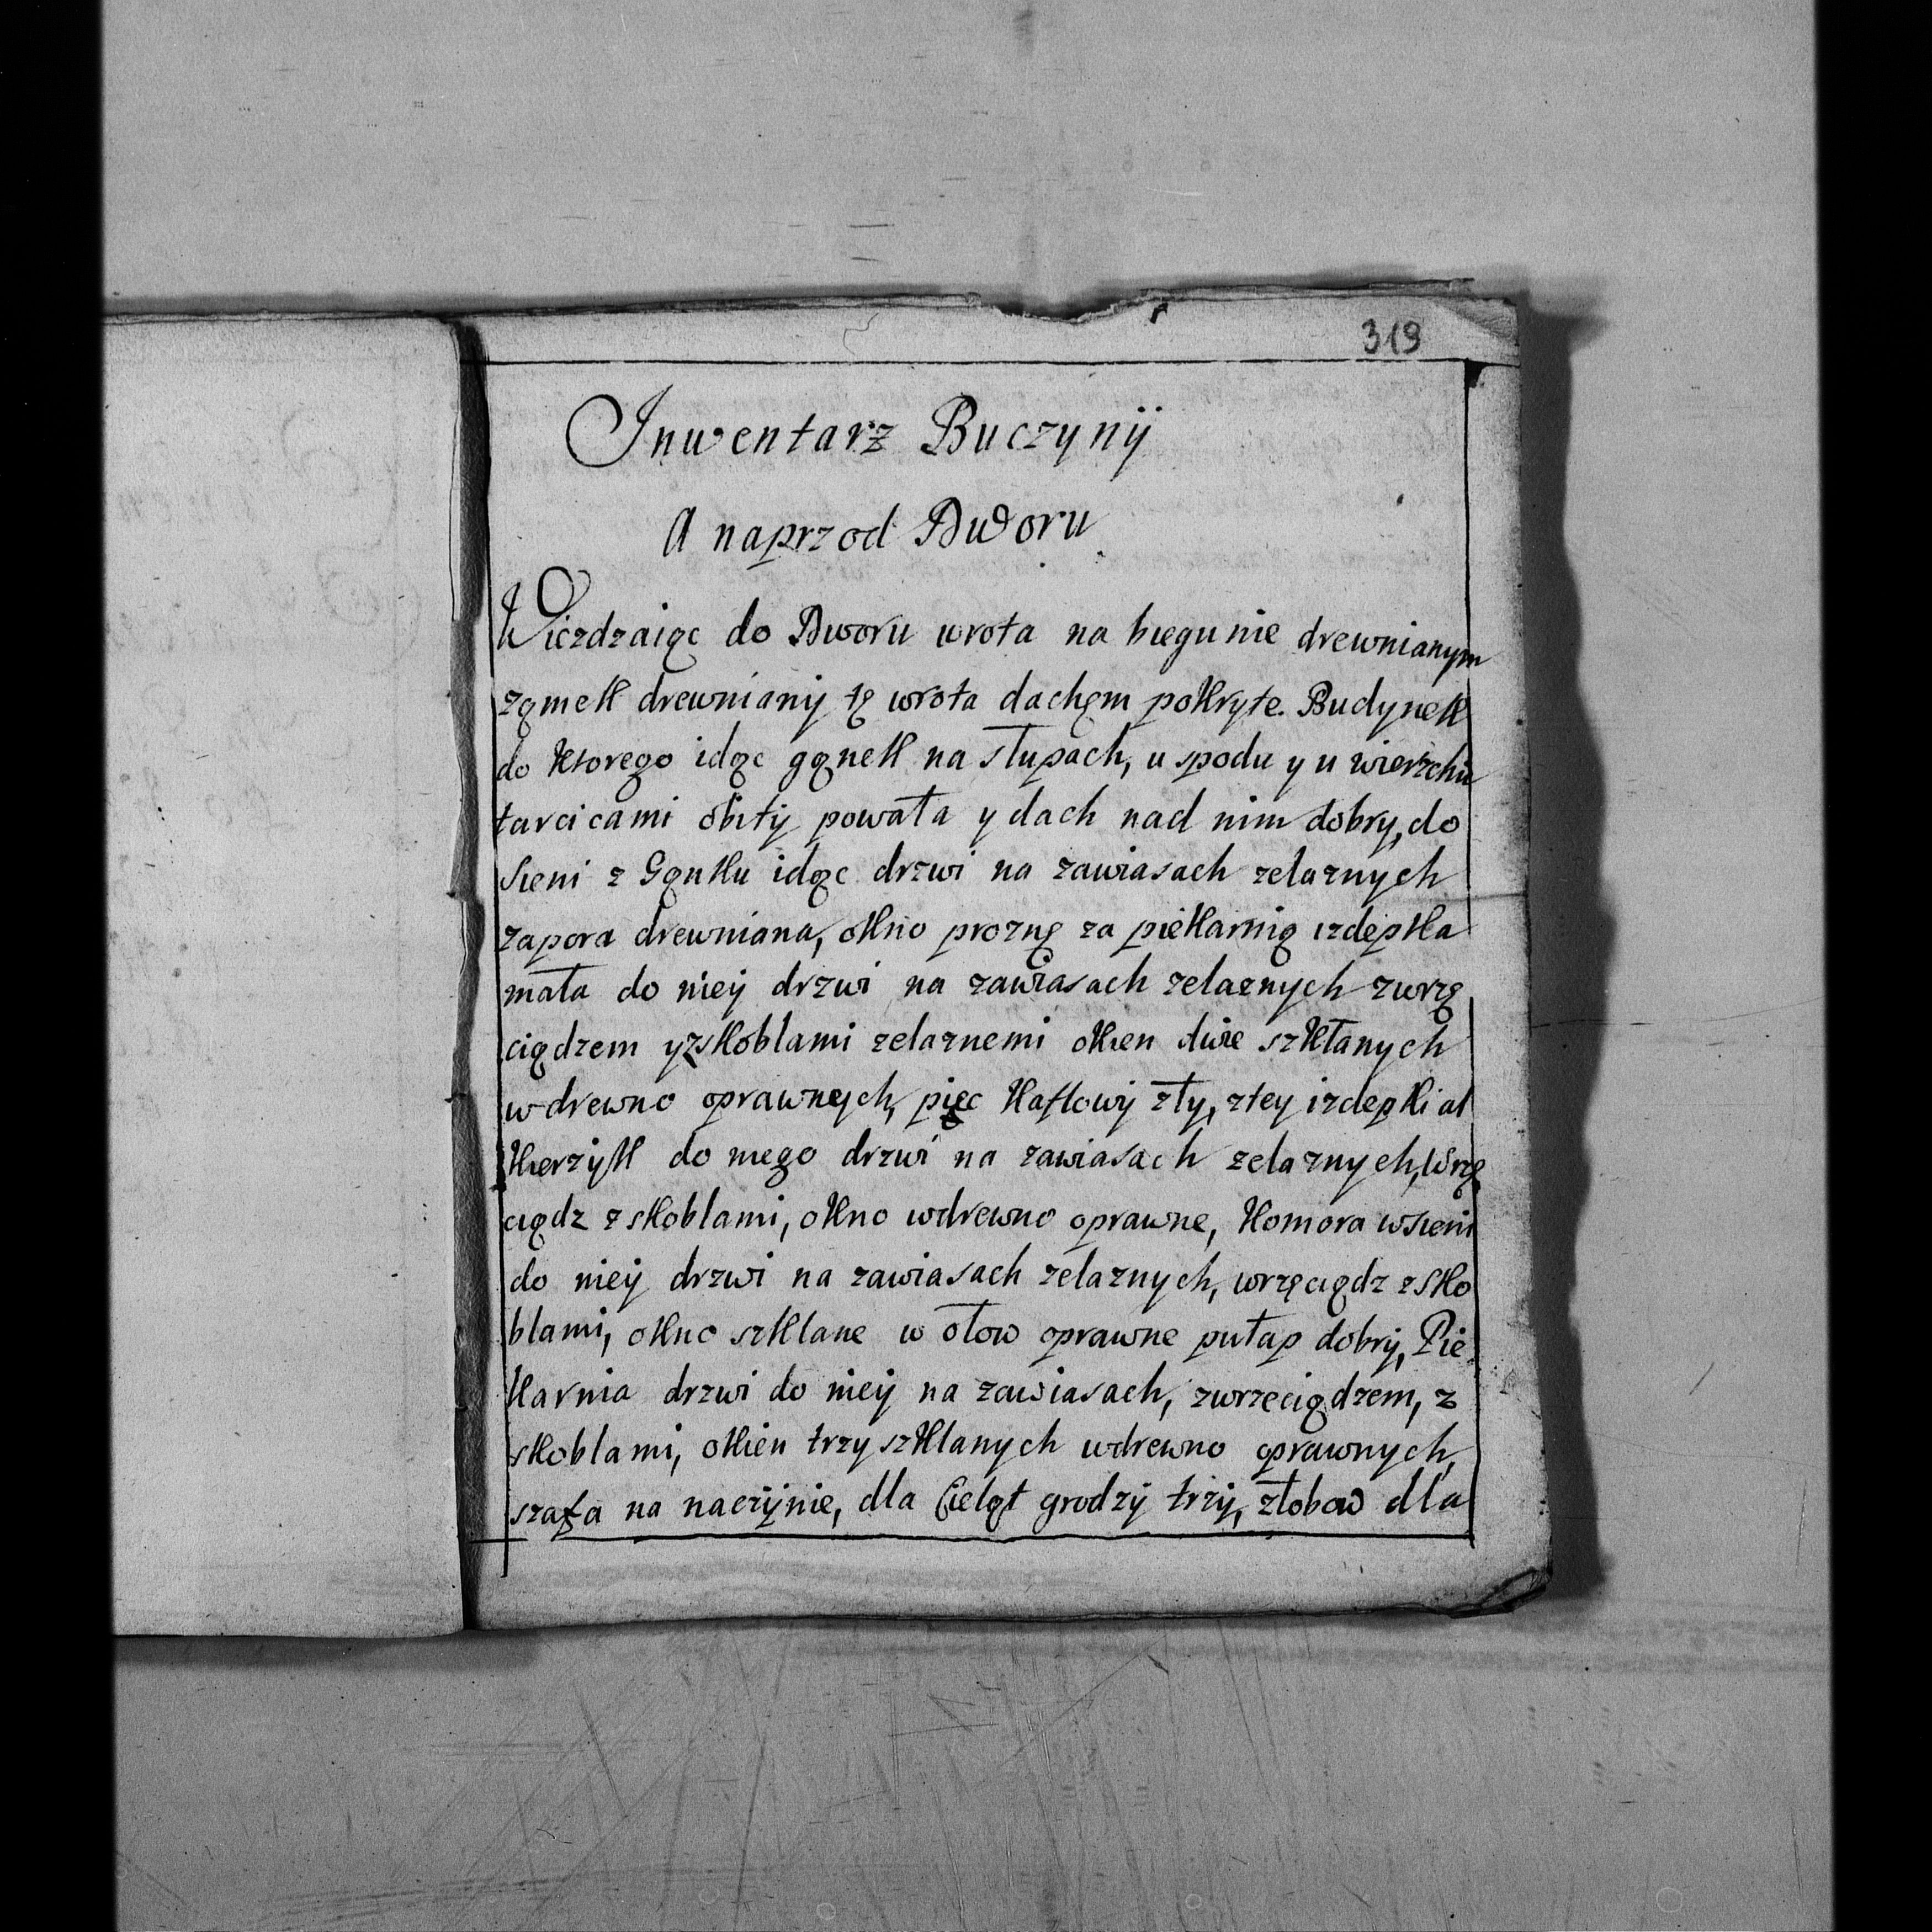 319
Inwentarz Buczynÿ
A naprzod Dworu
Wiezdzaiąc do Dworu wrota na biegunie drewnianym
ząmek drewnianÿ tę wrota dachęm pokryte. Budynek
do ktorego idąc gąnek na słupach, u spodu y u wierzchu
tarcicami obitÿ powała y dach nad nim dobry, do
sieni z Gąnku idąc drzwi na zawiasach zelaznych
zapora drewniana, okno proznę za piekarnią izdepka
mała do nieÿ drzwi na zawiasach zelaznych zwrzę
ciądzem y zskoblami zelaznemi okien dwie szkłanych
wdrewno oprawnych, pięc kaflowÿ złÿ, ztey izdepki al
kierzÿk do niego drzwi na zawiasach zelaznych, wrzę
ciądz zskoblami, okno wdrewno oprawne, komora wsieni
do nieÿ drzwi na zawiasach zelaznych, wrzęciądz zsko
blami, okno szklane w ołow oprawne pułap dobrÿ, Pie
karnia drzwi do nieÿ na zawiasach, zwrzeciądzem, z
skoblami, okien trzy szklanych wdrewno oprawnych,
szafa na naczÿnie, dla Cieląt grodzÿ trzÿ, złobow dla